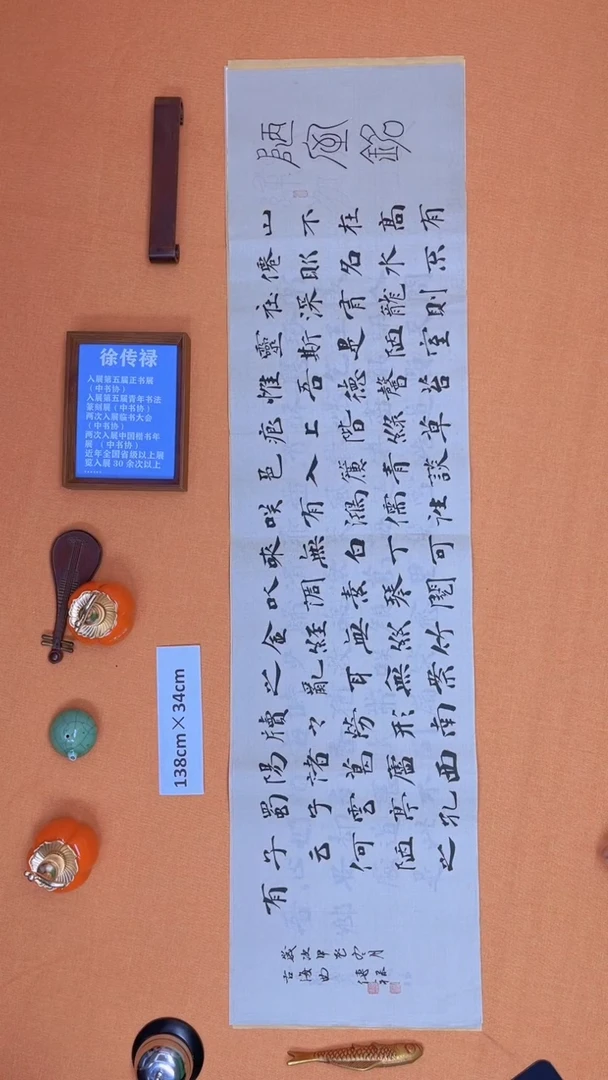 陋室銘
山不在高有
僊則名水不
在深有龍則
靈斯是陋室
惟吾德馨苔
痕上階綠草
色入簾青談
咲有鴻儒往
來無白丁可
以調素琴閱
金經無絲竹
之亂耳無案
牘之勞形南
陽諸葛廬西
蜀子雲亭孔
子云何陋之
有
歲次甲辰冬月
古海曲傳祿
徐传禄
入展第五届正书展
（中书协）
入展第五届青年书法
篆刻展（中书协）
两次入展临书大会
（中书协）
两次入展中国楷书年
展（中书协）
近年全国省级以上展
览入展 30 余次以上
138cm×34cm